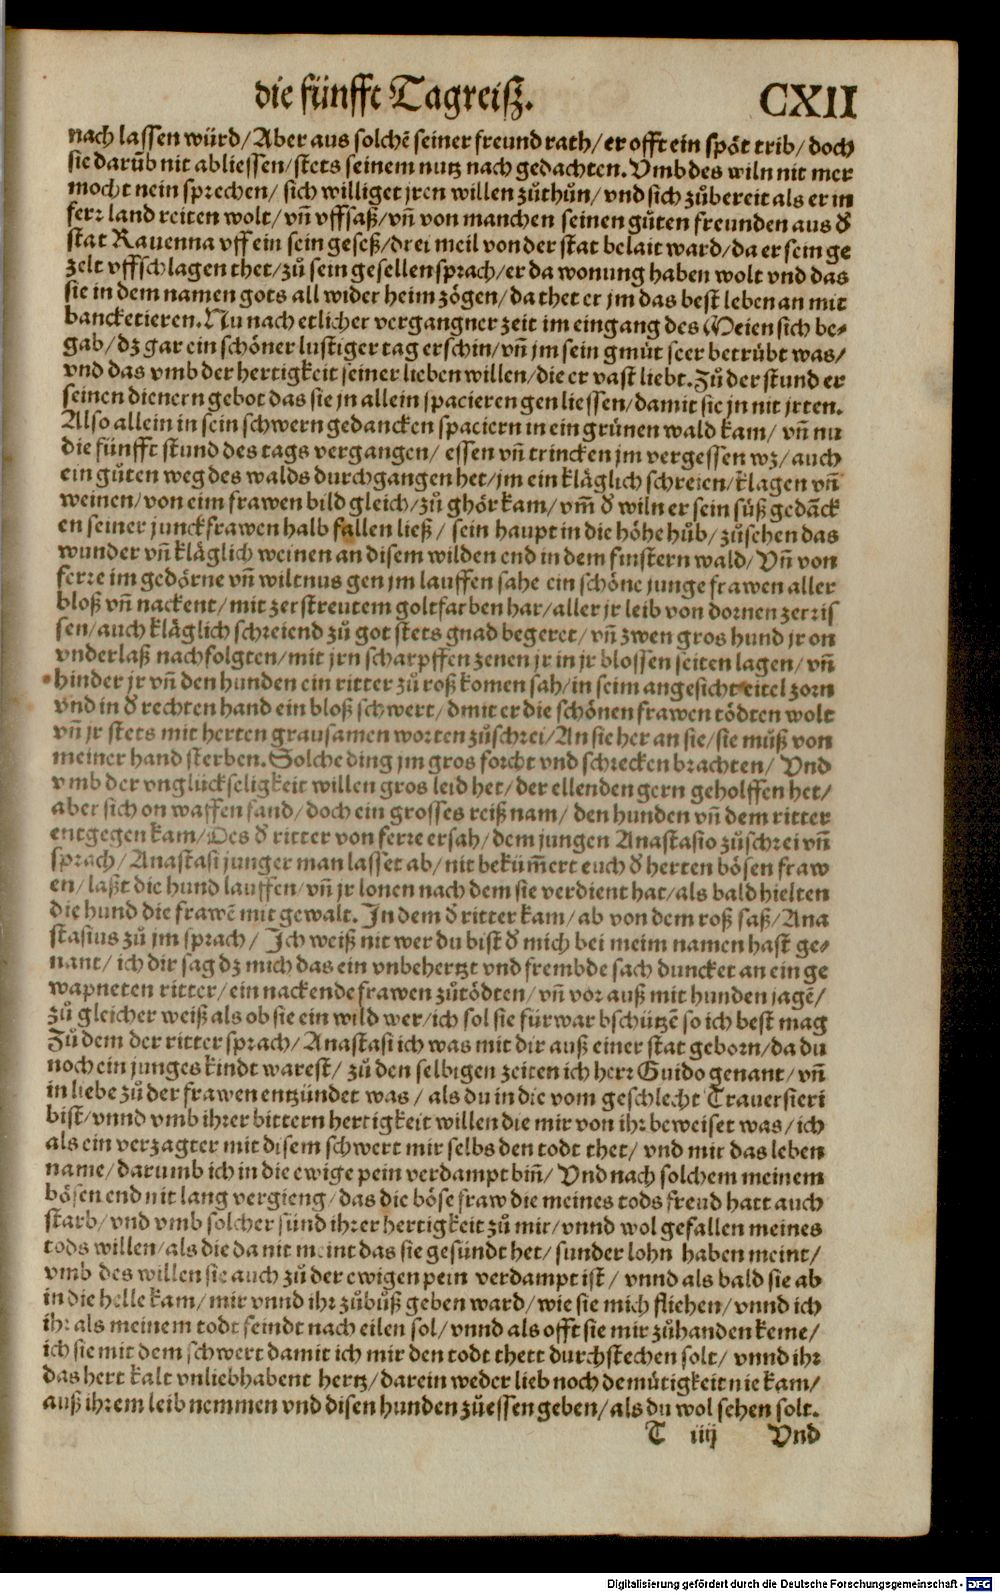 die fünfft Tagreisz. CXII
nach lassen würd/Aber aus solchē seiner freund rath/er offt ein spöt trib/doch
sie darūb nit abliessen/stets seinem nutz nach gedachten. Vmb des wiln nit mer
mocht nein sprechen/ sich williget jren willen zůthůn/vnd sich zůbereit als er in
ferr land reiten wolt/vñ vffsaß/vñ von manchen seinen gůten freunden aus đ
stat Rauenna vff ein sein geseß/drei meil von der stat belait ward/da er sein ge
zelt vffschlagen thet/zů sein gesellen sprach/er da wonung haben wolt vnd das
sie in dem namen gots all wider heim zögen/da thet er jm das best leben an mit
bancketieren. Nu nach etlicher vergangner zeit im eingang des Meien sich be-
gab/dz gar ein schöner lustiger tag erschin/vñ jm sein gmüt seer betrübt was/
vnd das vmb der hertigkeit seiner lieben willen/die er vast liebt. Zů der stund er
seinen dienern gebot das sie jn allein spacieren gen liessen/damit sie jn nit jrten.
Also allein in sein schwern gedancken spaciern in ein grünen wald kam/ vñ nu
die fünfft stund des tags vergangen/ essen vñ trincken jm vergessen wz/auch
ein gůten weg des walds durchgangen het/jm ein kläglich schreien/klagen vñ
weinen/von eim frawen bild gleich/zů ghör kam/vm̄ đ wiln er sein süß gedāck
en seiner junckfrawen halb fallen ließ/ sein haupt in die höhe hůb/zůsehen das
wunder vñ kläglich weinen an disem wilden end in dem finstern wald/Vñ von
ferre im gedörne vñ wiltnus gen jm lauffen sahe ein schöne junge frawen aller
bloß vñ nackent/mit zerstreutem goltfarben har/aller jr leib von dornen zerris
sen/auch kläglich schreiend zů got stets gnad begeret/vñ zwen gros hund jr on
vnderlaß nachfolgten/mit jrn scharpffen zenen jr in jr blossen seiten lagen/vñ
hinder jr vñ den hunden ein ritter zů roß komen sah/in seim angesicht eitel zorn
vnd in đ rechten hand ein bloß schwert/dmit er die schönen frawen tödten wolt
vñ jr stets mit herten grausamen worten zůschrei/An sie her an sie/sie můß von
meiner hand sterben. Solche ding jm gros forcht vnd schrecken brachten/ Vnd
vmb der vnglückseligkeit willen gros leid het/der ellenden gern geholffen het/
aber sich on waffen fand/doch ein grosses reiß nam/ den hunden vñ dem ritter
entgegen kam/Des đ ritter von ferre ersah/dem jungen Anastasio zůschrei vñ
sprach/Anastasi junger man lasset ab/nit bekūm̄ert euch đ herten bösen fraw
en/laßt die hund lauffen/vñ jr lonen nach dem sie verdient hat/als bald hielten
die hund die frawē mit gewalt. In dem đ ritter kam/ab von dem roß saß/Ana
stasius zů jm sprach/ Ich weiß nit wer du bist đ mich bei meim namen hast ge-
nant/ich dir sag dz mich das ein vnbehertzt vnd frembde sach duncket an ein ge
wapneten ritter/ein nackende frawen zůtödten/vñ vor auß mit hunden jagē/
zů gleicher weiß als ob sie ein wild wer/ich sol sie fürwar bschützē so ich best mag
Zů dem der ritter sprach/Anastasi ich was mit dir auß einer stat geborn/da du
noch ein junges kindt warest/ zů den selbigen zeiten ich herr Guido genant/vñ
in liebe zů der frawen entzündet was/ als du in die vom geschlecht Trauersieri
bist/vnnd vmb ihrer bittern hertigkeit willen die mir von ihr beweiset was/ich
als ein verzagter mit disem schwert mir selbs den todt thet/ vnd mir das leben
name/darumb ich in die ewige pein verdampt biñ/ Vnd nach solchem meinem
bösen end nit lang vergieng/das die böse fraw die meines tods freud hatt auch
starb/vnd vmb solcher sünd ihrer hertigkeit zů mir/vnnd wol gefallen meines
tods willen/als die da nit meint das sie gesündt het/ sunder lohn haben meint/
vmb des willen sie auch zů der ewigen pein verdampt ist/ vnnd als bald sie ab
in die helle kam/mir vnnd ihr zůbůß geben ward/wie sie mich fliehen/vnnd ich
ihr als meinem todt feindt nach eilen sol/vnnd als offt sie mir zůhanden keme/
ich sie mit dem schwert damit ich mir den todt thett durchstechen solt/ vnnd ihr
das hert kalt vnliebhabent hertz/darein weder lieb noch demütigkeit nie kam/
auß ihrem leib nemmen vnd disen hunden zůessen geben/als du wol sehen solt.
T iiij Vnd
Digitalisierung gefördert durch die Deutsche Forschungsgemeinschaft - DFG